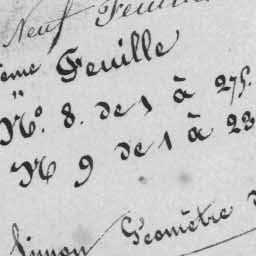 Neuf Feuilles
ème Feuille
N.º 8. de 1 à 275.
N 9 de 1 à 23
Simon Géomètre